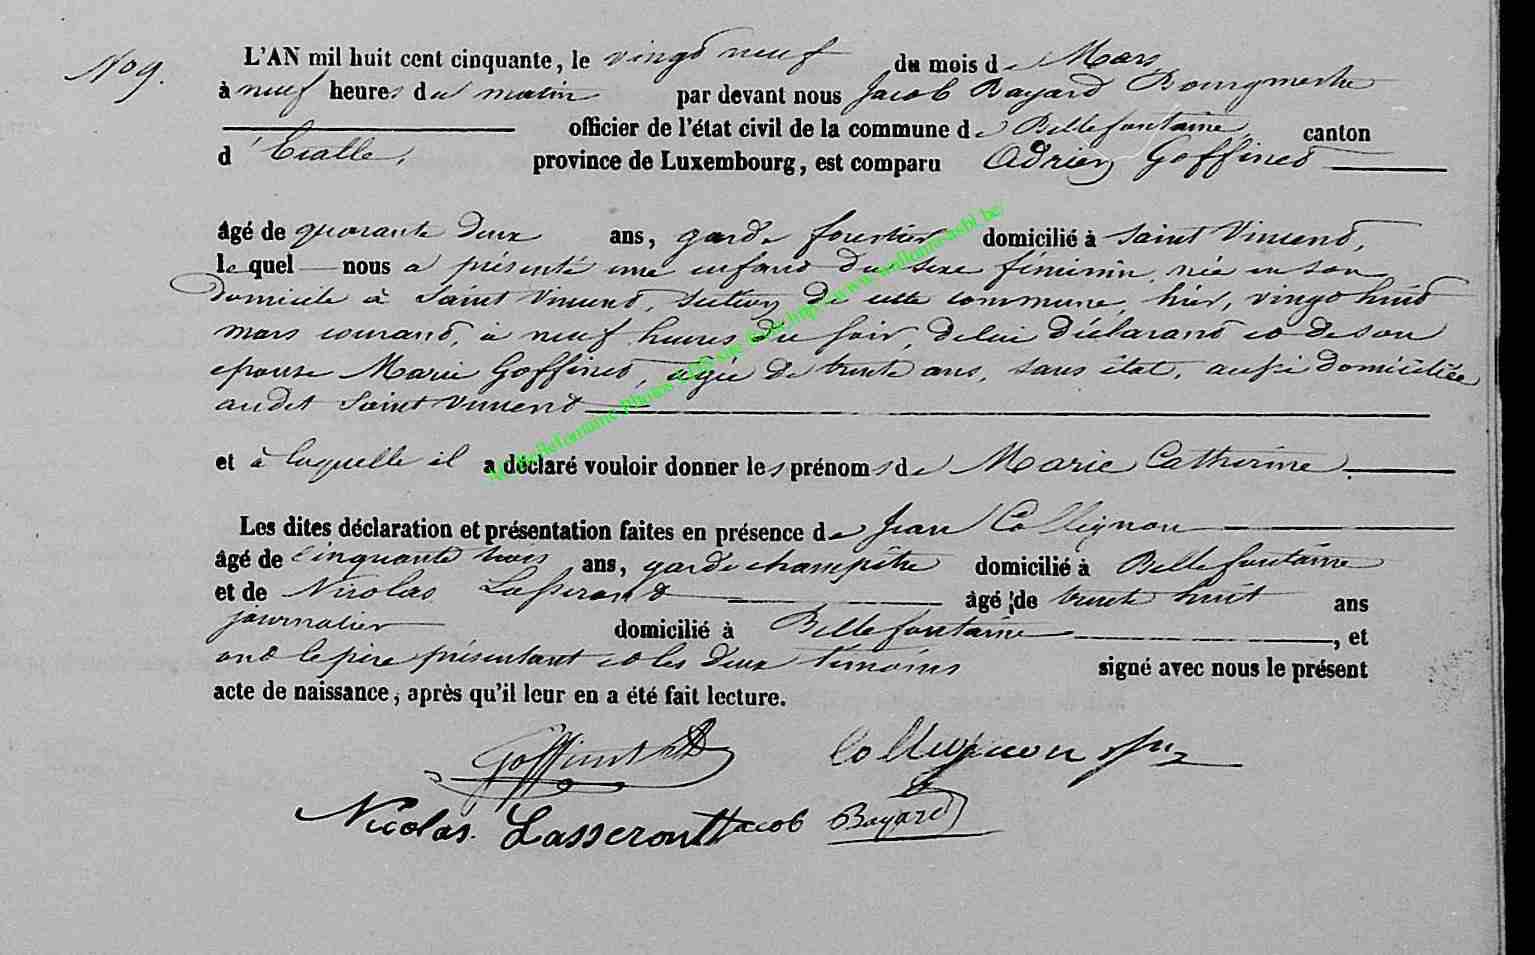 No 9.
L'AN mil huit cent cinquante, le vingt neuf du mois de Mars
à neuf heures du matin par devant nous Jacob Bayard Bourgmestre
officier de l'état civil de la commune de Bellefontaine, canton
d'Etalle, province de Luxembourg, est comparu Adrien Goffinet
âgé de quarante deux ans, garde forestier domicilié à Saint Vincent,
le quel nous a présenté une enfant du sexe féminin, née en son
domicile à Saint Vincent, section de cette commune, hier, vingt huit
mars courant, à neuf heures du soir, de lui déclarant et de son
épouse Marie Goffinet, agée de trente ans, sans état, aussi domiciliée
audit Saint Vincent
et à laquelle il a déclaré vouloir donner les prénoms de Marie Catherine.
Les dites déclaration et présentation faites en présence de Jean Collignon
âgé de cinquante trois ans, garde champêtre domicilié à Bellefontaine
et de Nicolas Lasseront âgé de trente huit ans
journalier domicilié à Bellefontaine, et
ont le père présentant et les deux témoins signé avec nous le présent
acte de naissance, après qu'il leur en a été fait lecture.
Goffinet Collignon
Nicolas. Lasseront Jacob Bayard